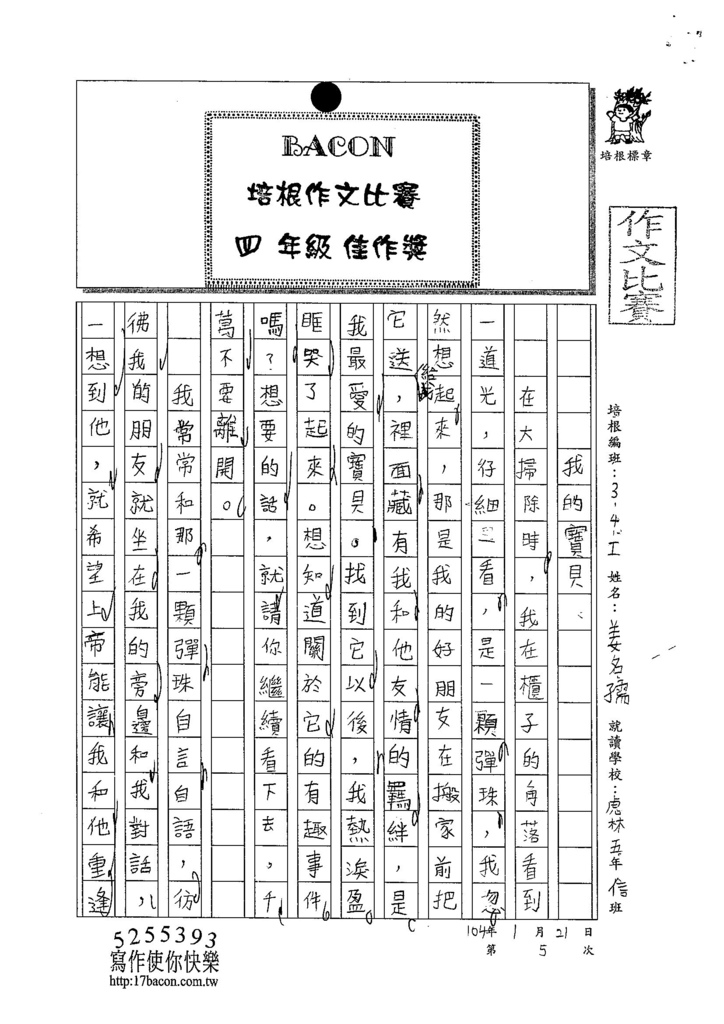 BACON
培根作文比賽
四 年級 佳作獎
培根標章
作文比賽
培根編班：3-4-I 姓名：姜名孺 就讀學校：虎林五年信班
104年 1月 21日
第 5 次
我的寶貝
在大掃除時，我在櫃子的角落看到
一道光，仔細一看，是一顆彈珠，我忽
然想起來，那是我的好朋友在搬家前把
它送給我，裡面藏有我和他友情的羈絆，是
我最愛的寶貝。找到它以後，我熱淚盈
眶哭了起來。想知道關於它的有趣事件
嗎？想要的話，就請你繼續看下去，千
萬不要離開。
我常常和那一顆彈珠自言自語，彷
彿我的朋友就坐在我的旁邊和我對話，
一想到他，就希望上帝能讓我和他重逢
5255393
寫作使你快樂
http:17bacon.com.tw